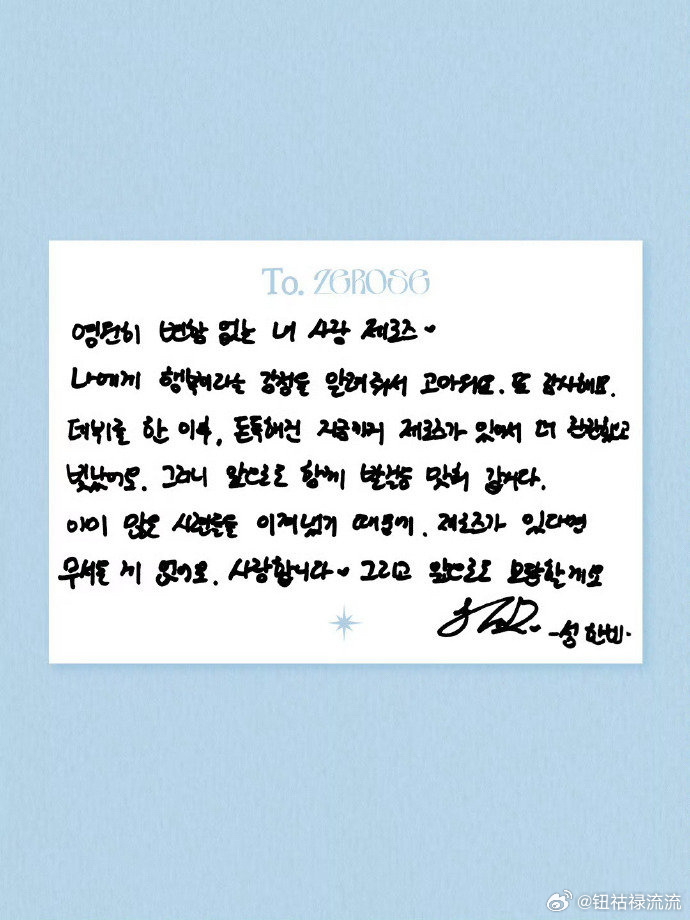 To. ZEROSE
영원히 변함 없는 내 사랑 제로즈♥
나에게 행복이라는 감정을 알려줘서 고마워요. 또 감사해요.
데뷔를 한 이후, 돈독해진 지금까지 제로즈가 있어서 더 찬란했고
빛났어요. 그러니 앞으로도 함께 발걸음 맞춰 갑시다.
이미 많은 시련들을 이겨냈기 때문에, 제로즈가 있다면
무서울 게 없어요. 사랑합니다♥ 그리고 앞으로도 보답할게요
-성한빈-
@钮祜禄流流